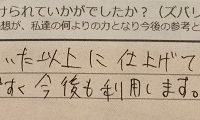 けられていかがでしたか？（ズバリ
想が、私達の何よりの力となり今後の参考と
いた以上に仕上げて
すく今後も利用します。